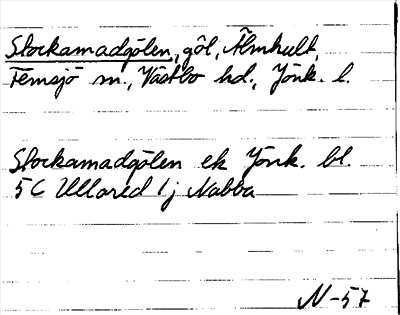 Stockamadgölen, göl, Älmhult,
Femsjö sn., Västbo hd., Jönk. l.
Stockamadgölen ek Jönk. bl.
5 C Ullared 1 j Nabba
N-57